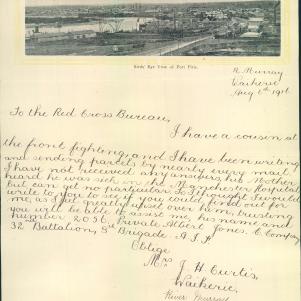 Birds' Eye View of Port Pirie.
R. Murray
Waikerie
Aug 6th 1916
To the Red Cross Bureau,
I have a cousin at
the front fighting, and I have been writing
and sending parcels by nearly every mail
I have not received any answers, his Mother
heard he was sick in the Manchester Hospital
but can get no particulars. So I thought I would
write to you to see if you could find out for
me, as I feel greatly upset over him, trusting
you will be able to assist me, his name and
number 2056, Private Albert Jones. C. Company
32 Battalion, 8th Brigade. A.I.F.
Oblige
Mrs J. H. Curtis,
Waikerie,
River Murray